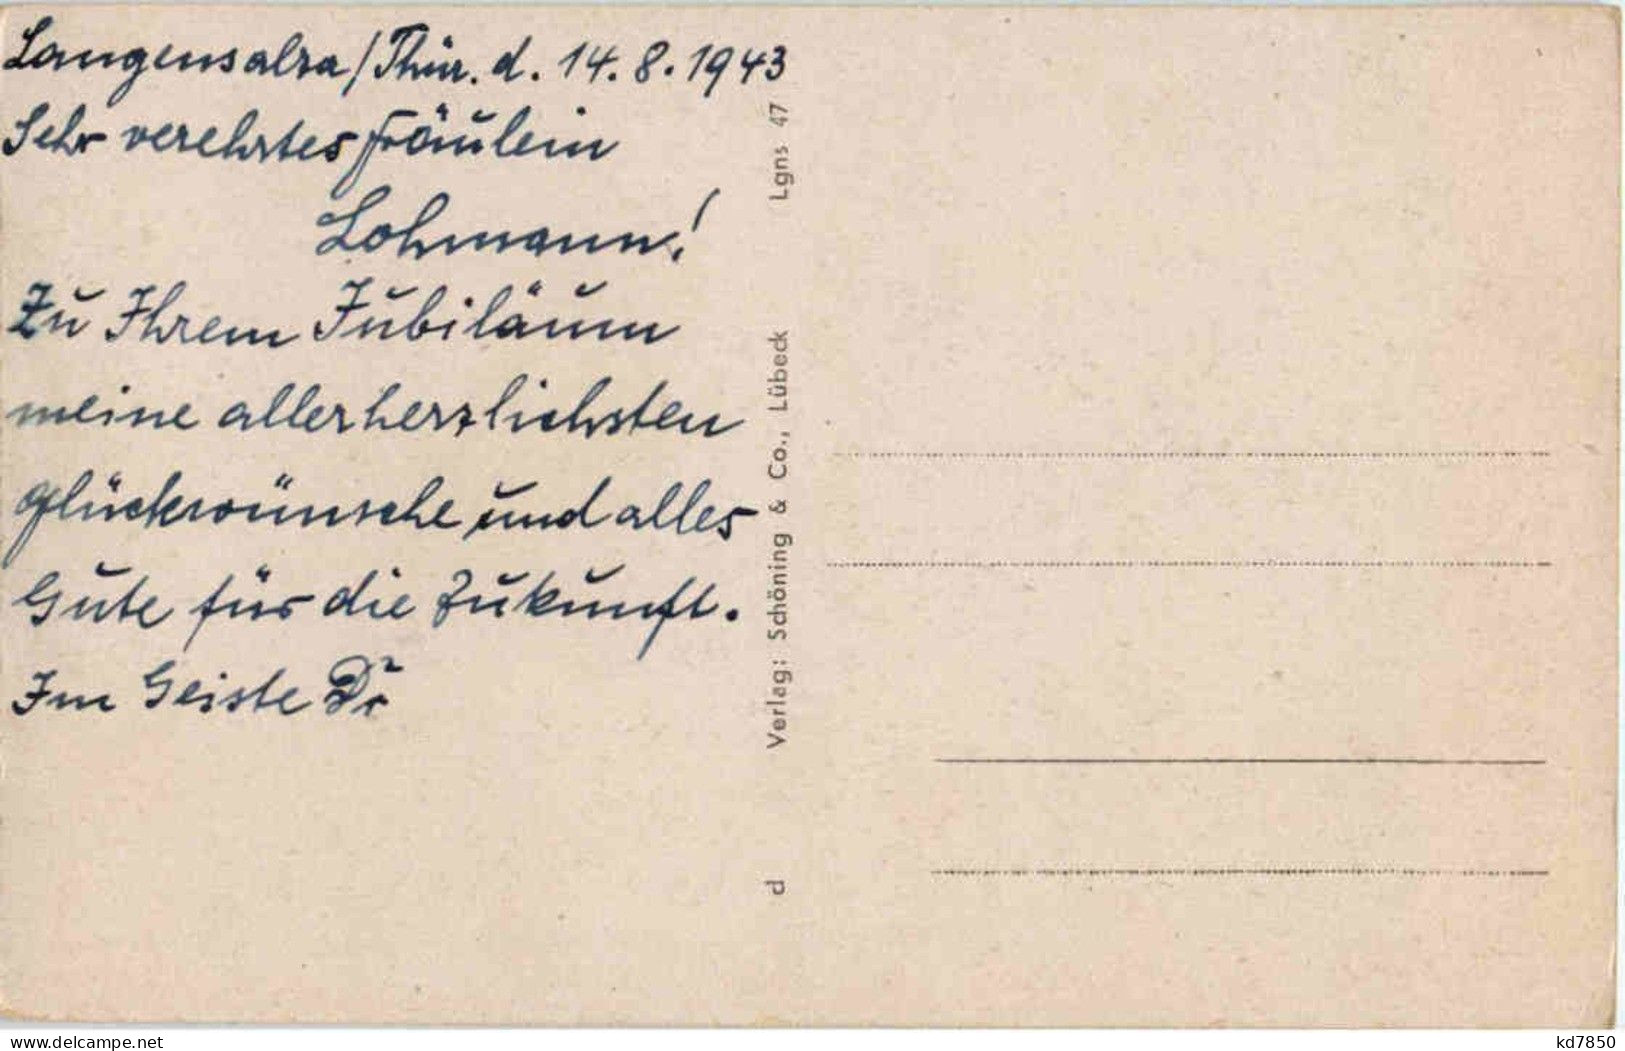 Langensalza/Thür. d. 14.8.1943
Sehr verehrtes Fräulein
Lohmann!
Zu Ihrem Jubiläum
meine allerherzlichsten
Glückwünsche und alles
Gute für die Zukunft.
Im Geiste Dr
d Verlag: Schöning & Co., Lübeck Lgns 47
delcampe.net
kd7850